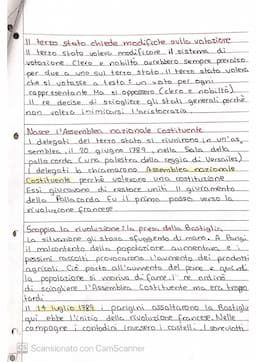 Il terzo stato chiede modifiche sulla votazione
Il terzo stato voleva modificare il sistema di
votazione. Clero e nobiltà avrebbero sempre prevalso
per due a uno sul terzo stato. Il terzo stato voleva
che si votasse a testa: un voto per ogni
rappresentante. Ma si opposero (clero e nobiltà)
Il re decise di sciogliere gli stati generali perché
non voleva inimicarsi l'aristocrazia
Nasce l'Assemblea nazionale Costituente
I delegati del terzo stato si riunirono in un'as
semblea, il 20 giugno 1789, nella Sala della
pallacorda (una palestra della reggia di Versailles)
I delegati la chiamarono Assemblea nazionale
Costituente perché volevano una costituzione
Essi giuravano di restare uniti. Il giuramento
della Pallacorda fu il primo passo verso la
rivoluzione francese
Scoppia la rivoluzione: la presa della Bastiglia
La situazione gli stava sfuggendo di mano. A Parigi
il malcontento della popolazione aumentava e i
pessimi raccolti provocarono l'aumento dei prodotti
agricoli. Ciò portò all'aumento del pane e quindi
la popolazione si moriva di fame. Il re ordinò
di sciogliere l'Assemblea Costituente ma era troppo
tardi
Il 14 luglio 1789 i parigini assaltarono la Bastiglia
qui ebbe l'inizio della rivoluzione francese. Nelle
campagne i contadini i castelli. I
CS Scansionato con CamScanner